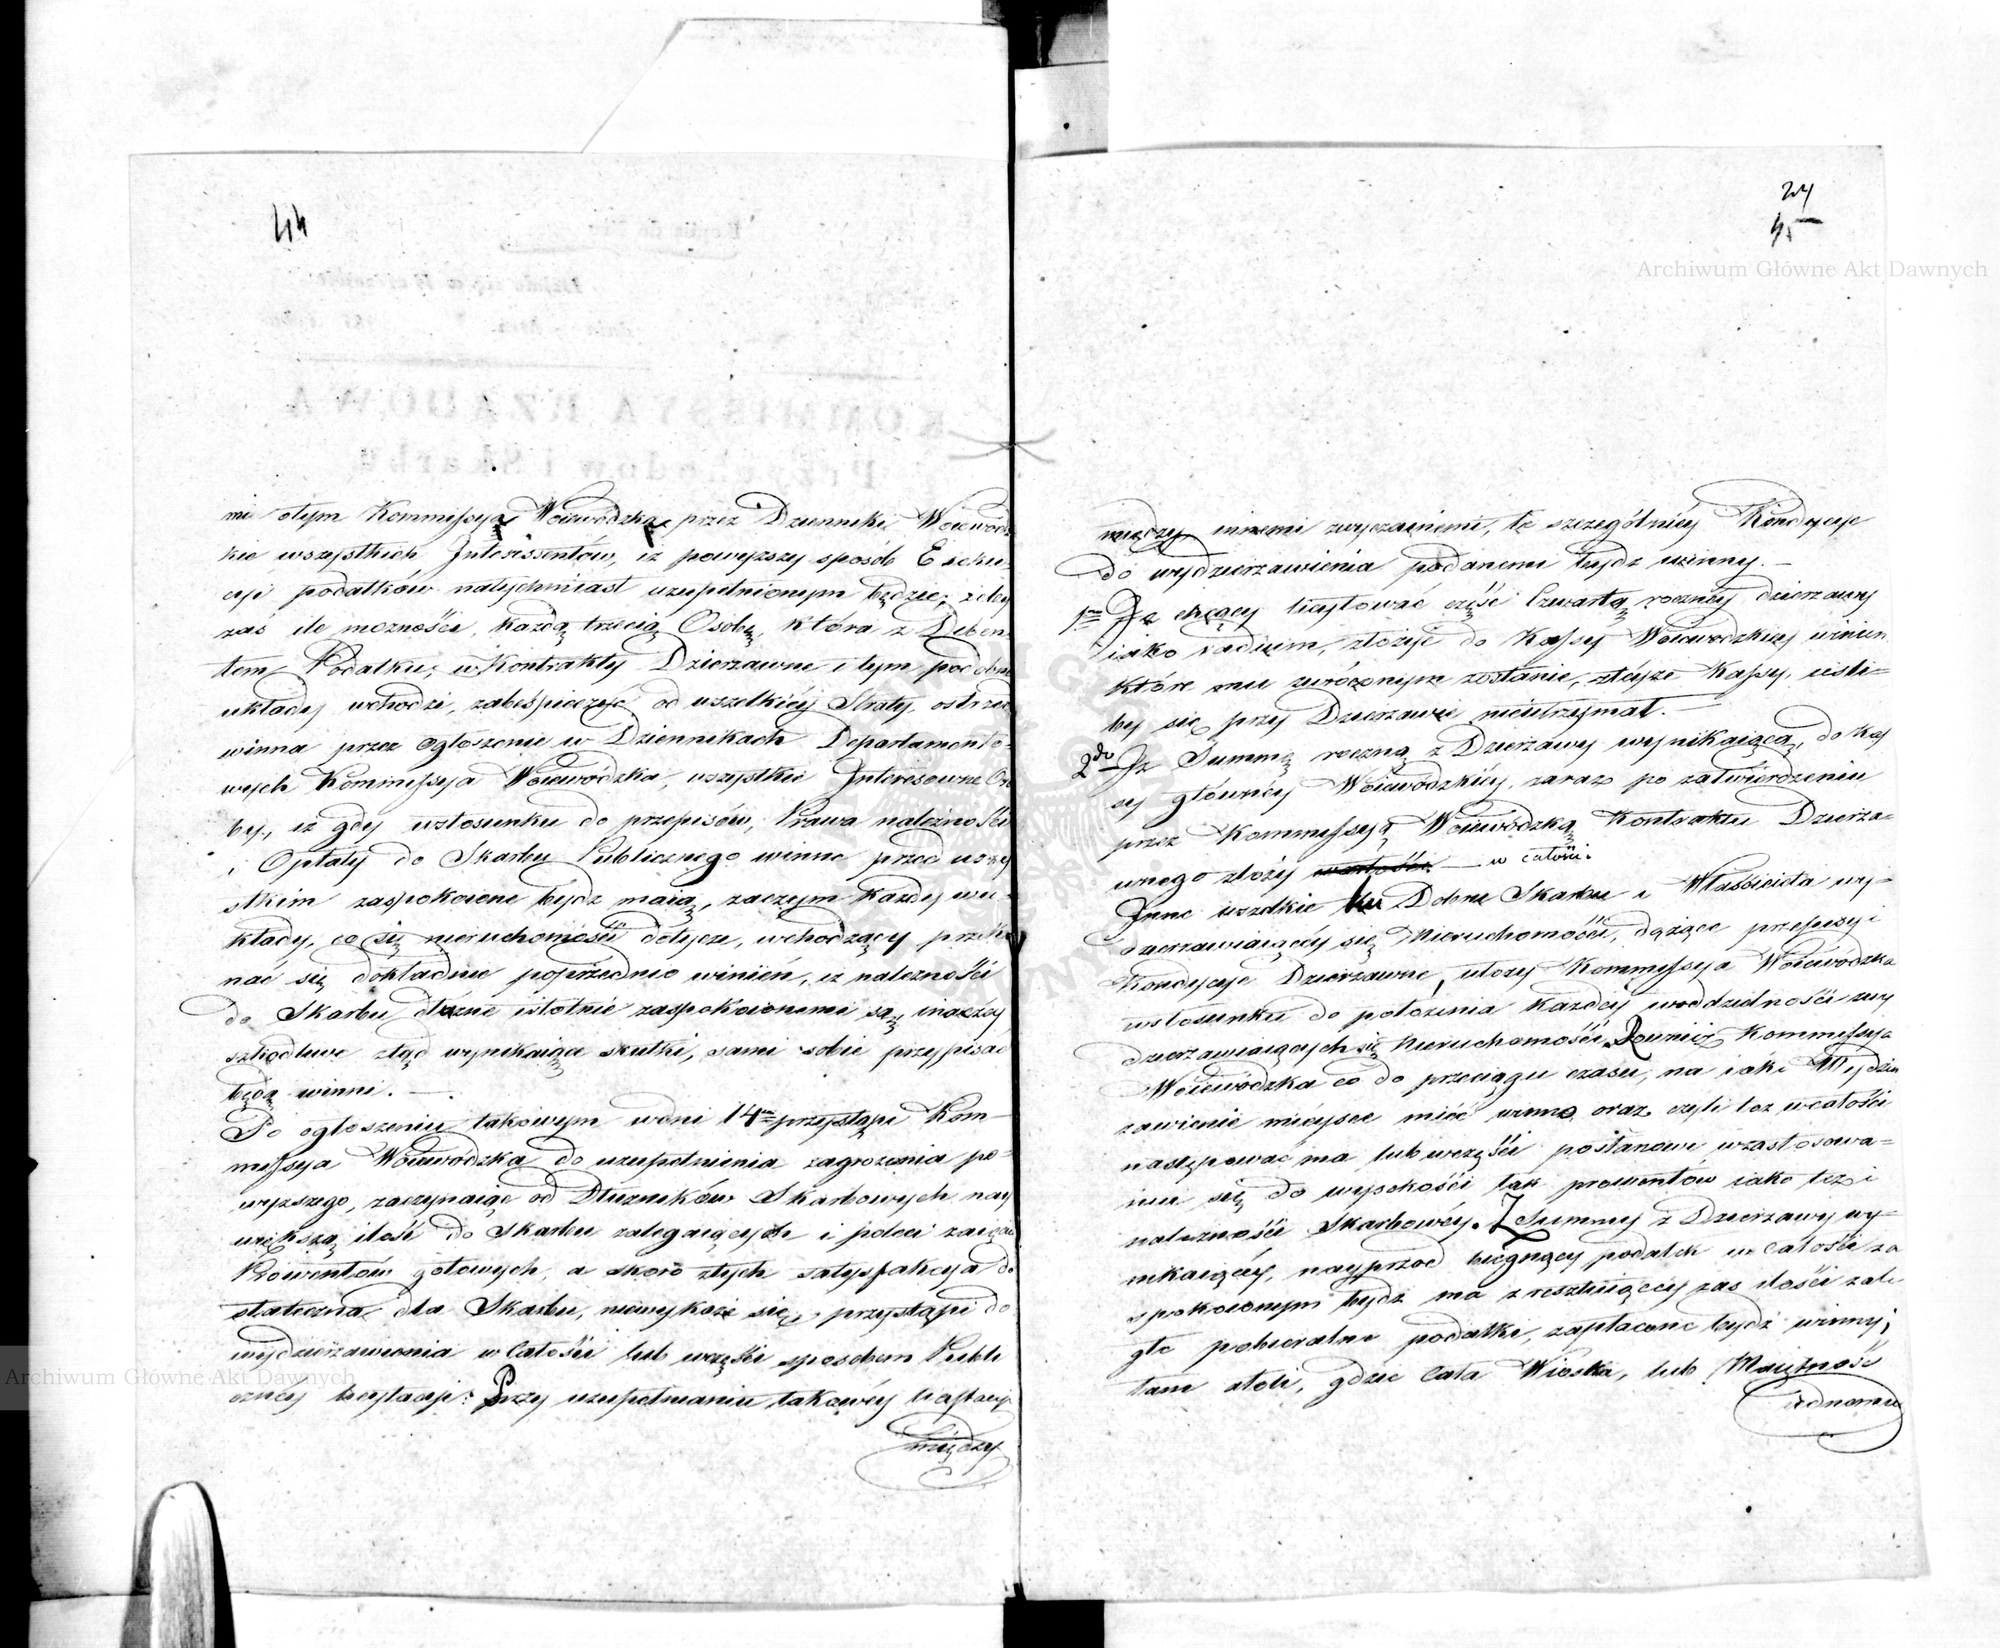 44
mi otym Kommissya Woiewódzka przez Dzienniki Woiewódz
kie wszystkich Interessentów, iż powyższy sposób Exeku
cyi podatkow natychmiast uzupełnionym będzie; żeby
zaś ile możności, każdą trzecią Osobę, która z Deben
tem Podatku, w Kontrakty Dzierżawne i tym podobne
układy wchodzi, zabespieczyć od wszelkiéy Straty, ostrzedz
winna przez ogłoszenie w Dziennikach Departamento-
wych Kommissya Woiewódzka, wszystkie Interesowne Oso
by, iż gdy wstosunku do przepisów, Prawa należności
i Opłaty do Skarbu Publicznego winne przed wszy
stkim zaspokoione bydź maią, zaczym każdy wu-
kłady, co się nieruchomości dotycze, wchodzący przeko
nać się dokładnie poprzednio winien, iż należności
do Skarbu dłużne istotnie zaspokoionemi są, inaczéy
szkodliwe ztąd wynikaiące skutki, sami sobie przypisać
będą winni. —
Po ogłoszeniu takowym wdni 14 przystąpi Kom-
missya Woiewodzka do uzupełnienia zagrożenia po-
wyższego, zaczynaiąc od Dłużników Skarbowych nay
większą ilość do Skarbu zalegaiących i poleci zaięcie
Prowentów gotowych, a skoro ztych satysfakcya do
stateczna dla Skarbu, niewykaże się, przystąpi do
wydzierżawienia w Całości lub wczęści sposobem Publi
cznéy licytacyi: Przy uzupełnianiu takowéy licytacyi
między
24
45
Archiwum Główne Akt Dawnych
między innemi zwyczainemi, te szczególniéy Kondycye
do wydzierzawienia podanemi bydz winny. —
1mo Iż chcący licytować część Czwartą rocznéy dzierzawy
iako vadium, złożyć do Kassy Woiewodzkiéy winien
które mu zwróconym zostanie, ztéyże Kassy, ieśli-
by się przy Dzierzawie nieutrzymał. —
2do Iż Summę roczną z Dzierżawy wynikaiącą, do Kas
sy głównéy Woiewódzkiéy, zaraz po zatwierdzeniu
przez Kommissyą Woiewódzką Kontraktu Dzierża-
wnego złoży — w całości.
Inne wszelkie ku Dobru Skarbu i Właściciela wy-
dzierzawiaiącéy się Nieruchomości, dążące przepisy i
Kondycye Dzierżawne, ułoży Kommissya Woiewódzka
wstosunku do położenia każdéy woddzielności wy
dzierzawiaiących się Nieruchomości. Rownież Kommissya
Woiewódzka co do przeciągu czasu, na iaki Wydzier
zawienie mieysce mieć winno oraz czyli toż wcałości
następować ma lub wczęści postanowi wzastosowa-
niu się do wysokości tak prowentów iako też i
należności Skarbowéy. Z Summy z Dzierzawy wy-
nikaiącéy, nayprzod bieżący podatek w całości za
spokoionym bydz ma z resztuiącéy zas ilości zale
głe pobieralne podatki, zapłacone bydź winny;
tam atoli, gdzie Cała Wioska, lub Maiętność
iednemu
Archiwum Główne Akt Dawnych